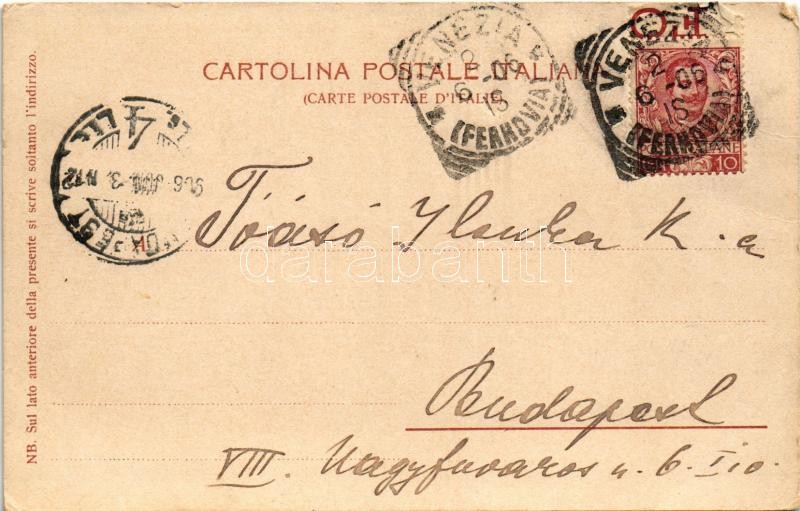 CARTOLINA POSTALE ITALIANA
(CARTE POSTALE D'ITALIE)
VENEZIA
2 - 06
6 1S
(FERROVIA)
VENEZIA
2 - 06
6 1S
(FERROVIA)
10
4
906 JUN. 3. N12
Tóásó Ilonka K. a
darabanth
Budapest
VIII. Nagyfuvaros u. 6. I 10.
NB. Sul lato anteriore della presente si scrive soltanto l'indirizzo.